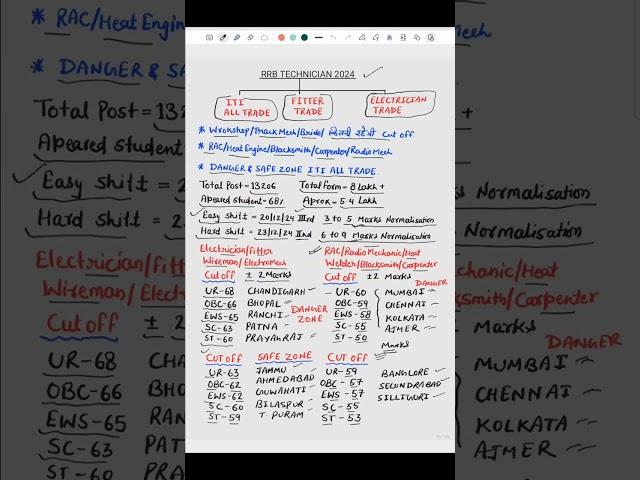 RRB TECHNICIAN 2024 ✓
ITI ALL TRADE
FITTER TRADE
ELECTRICIAN TRADE
* Wrokshop/TrackMech/Bride/ कितनी रहेगी Cut off.
* RAC/Heat Engine/Blacksmith/Carpenter/RadioMech
* DANGER & SAFE ZONE ITI ALL TRADE.
Total Post = 13206 Total form = 8 Lakh +
Apeared student - 68% Aprox - 5.4 Lakh
Easy shilt = 20/12/24 IIIrd 3 to 5 Marks Normalisation
Hard shilt = 23/12/24 IInd 6 to 9 Marks Normalisation
Electrician/fitter
Wireman/ElectroMech
Cut off ± 2 Marks
UR-68 CHANDIGARH
OBC-66 BHOPAL
EWS-65 RANCHI
SC-63 PATNA
ST-60 PRAYAGRAJ
DANGER ZONE
RAC/Radio Mechanic/Heat
Welder/Blacksmith/Carpenter
Cut off ±2 Marks DANGER
UR-60 MUMBAI
OBC-59 CHENNAI
EWS-58 KOLKATA
SC-55 AJMER
ST-50
Marks
Cut off SAFE ZONE Cut off
UR-63 JAMMU UR-59 BANGLORE
OBC-62 AHMEDABAD OBC-57 SECUNDRABAD
EWS-62 GUWAHATI EWS-57 SILLIGURI
SC-60 BILASPUR SC-55
ST-59 T. PURAM ST-53